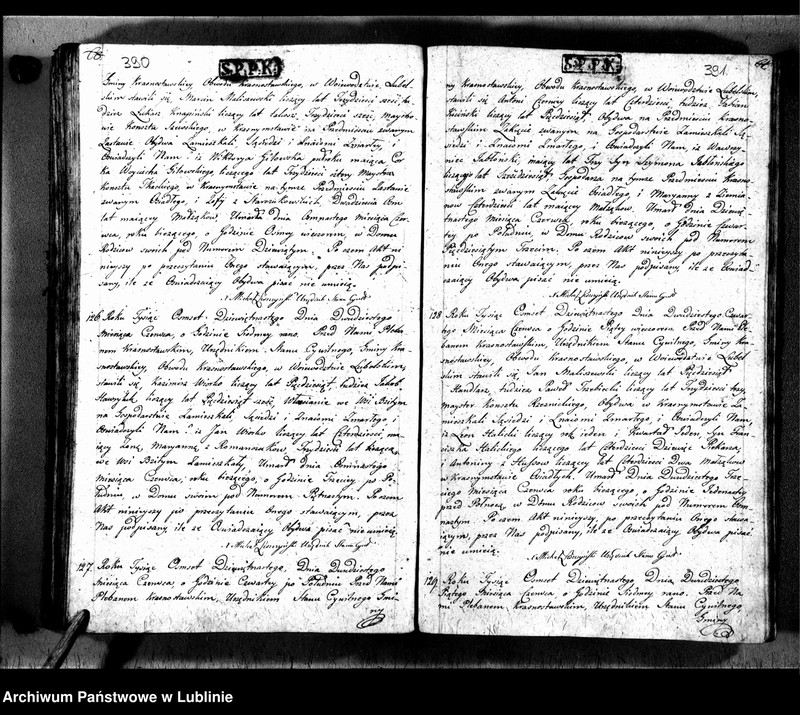 390
S.P.P.K.
Gminy Krasnostawskiey, Obwodu Krasnostawskiego, w Woiewodztwie Lubel-
skim stawili się Marcin Malinowski liczący lat Trzydzieści sześć tu-
dzież Łukasz liczący lat
w Krasnymstawie na Przedmieściu zwanym
Zastawie Obydwa Zamieszkali Sąsiedzi i Znaiomi Zmarłey, i
Oświadczyli Nam: iż Wiktorya Gilowska pułroku maiąca Co-
ka Woyciecha Gilowskiego liczącego lat Trzydzieści cztery Maystra
Konsztu w Krasnymstawie na tymże Przedmieściu Zastawie
zwanym Osiadłego, i Zofij z Dwadzieścia Ośm
lat maiącey Małżąków, Umarła Dnia Osmnastego Miesiąca Czer-
wca, roku bieżącego, o Godzinie Osmey wieczorem, w Domu
Rodziców swoich pod Numerem Dziewiątym. Poczem Akt ni-
nieyszy po przeczytaniu Onego stawaiącym, przez Nas podpi-
sany, ile że Oświadczaiący Obydwa pisać nie umieią.
Urzędnik Stanu Cywil
126 Roku Tysiąc Ośmset Dziewiętnastego Dnia Dwudziestego
Miesiąca Czerwca, o Godzinie Siodmey rano. Przed Nami Pleba-
nem Krasnostawskim, Urzędnikiem Stanu Cywilnego, Gminy Kra-
snostawskiey, Obwodu Krasnostawskiego, w Woiewodztwie Lubelskim,
stawili się, Kazimierz Wiorko liczący lat Pięćdziesiąt, tudzież Jakob
liczący lat Pięćdziesiąt sześć, Włościanie we Wsi
na Gospodarstwie Zamieszkali Sąsiedzi i Znaiomi Zmarłego, i
Oświadczyli Nam: iż Jan Wiorko liczący lat Czterdzieści, ma-
iący Żonę, Maryannę z Romanowskich, Trzydzieści lat liczącą,
we Wsi Zamieszkały, Umarł dnia Osmnastego
Miesiąca Czerwca, roku bieżącego, o Godzinie Trzeciey po Po-
łudniu, w Domu swoim pod Numerem Poczem
Akt ninieyszy po przeczytaniu Onego stawaiącym, przez
Nas podpisany, ile że Oświadczaiący Obydwa pisać nie umieią.
Urzędnik Stanu Cywil
127. Roku Tysiąc Ośmset Dziewiętnastego, Dnia Dwudziestego
Miesiąca Czerwca, o Godzinie Czwartey po Południu Przed Nami
Plebanem Krasnostawskim, Urzędnikiem Stanu Cywilnego Gmi-
ny
391
S.P.P.K.
ny Krasnostawskiey, Obwodu Krasnostawskiego, w Woiewodztwie Lubelskim,
stawili się Antoni Czerwiy liczący lat Czterdzieści, tudzież Fabian
liczący lat Pięćdziesiąt, Obydwa na Przedmieściu Krasno-
stawskim Zakęcie zwanym, na Gospodarstwie Zamieszkali Są-
siedzi i Znaiomi Zmarłego, i Oświadczyli Nam, iż Wawrzy-
niec Jabłoński, maiący lat Trzy Syn Szymona Jabłońskiego
liczącego lat Sześćdziesiąt Gospodarza na tymże Przedmieściu Krasno-
stawskim zwanym Zakęcie Osiadłego, i Maryanny z
Czterdzieści lat maiącey Małżąków, Umarł Dnia Dziewię-
tnastego Miesiąca Czerwca, roku bieżącego, o Godzinie Czwar-
tey po Południu w Domu Rodziców swoich pod Numerem
Pięćdziesiątym Trzecim. Poczem Akt ninieyszy po przeczyta-
niu Onego stawaiącym, przez Nas podpisany, ile że Oświad-
czaiący Obydwa pisać nie umieią.
Urzędnik Stanu Cywil
128 Roku Tysiąc Ośmset Dziewiętnastego Dnia Dwudziestego Czwar-
tego Miesiąca Czerwca o Godzinie Piątey wieczorem Przed Nami Ple-
banem Krasnostawskim, Urzędnikiem Stanu Cywilnego, Gminy Kra-
snostawskiey, Obwodu Krasnostawskiego, w Woiewodztwie Lubel-
skim stawili się Jan Maliszewski liczący lat Pięćdziesiąt
Handlarz, tudzież Paweł liczący lat Trzydzieści trzy
Mayster Konsztu Rzeznickiego, Obydwa w Krasnymstawie Za-
mieszkali Sąsiedzi i Znaiomi Zmarłego, i Oświadczyli Nam,
iż Leon Halicki liczący rok ieden, i Kwartał Jeden, Syn Fran-
ciszka Halickiego liczącego lat Czterdzieści Dziewięć Piekarza,
i Antoniny z liczącey lat Czterdzieści Dwa Małżąków
w Krasnymstawie Osiadłych, Umarł Dnia Dwudziestego Trze-
ciego Miesiąca Czerwca roku bieżącego, o Godzinie Jedenastey
przed Północą, w Domu Rodziców swoich pod Numerem Osm-
nastym. Poczem Akt ninieyszy, po przeczytaniu Onego stawa-
iącym, przez Nas podpisany, ile że Oświadczaiący Obydwa pisać
nie umieią.
Urzędnik Stanu Cywil
129 Roku Tysiąc Ośmset Dziewiętnastego, Dnia Dwudziestego
Piątego Miesiąca Czerwca, o Godzinie Siodmey rano. Przed Na-
mi Plebanem Krasnostawskim, Urzędnikiem Stanu Cywilnego
Gminy
Archiwum Państwowe w Lublinie